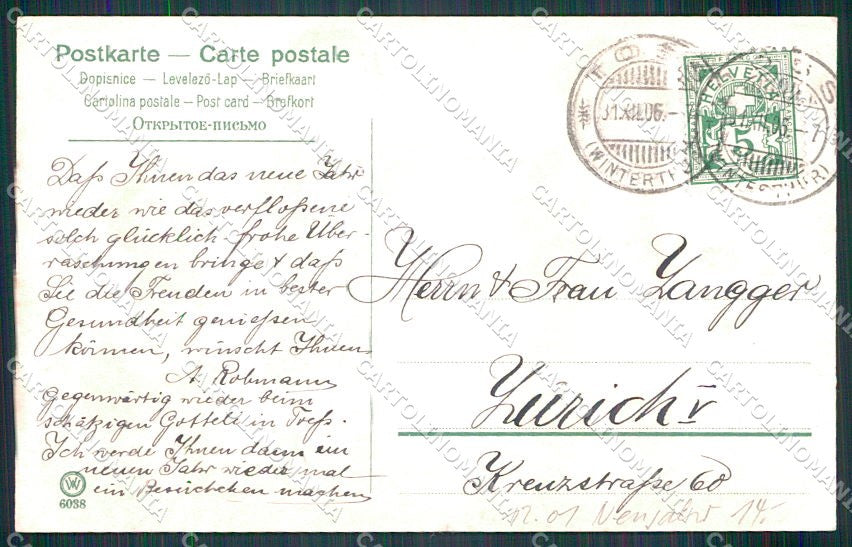 Postkarte — Carte postale
Dopisnice — Levelező-Lap — Briefkaart
Cartolina postale — Post card — Brefkort
Открытое-письмо
Daß Ihnen das neue Jahr
wieder wie das verfloßene
solch glücklich frohe Über-
raschungen bringe & daß
Sie die Freuden in bester
Gesundheit genießen
können, wünscht Ihnen
A. Robmann
gegenwärtig wieder beim
schätzigen Gotteli in Toeß.
Ich werde Ihnen dann im
neuen Jahr wieder mal
ein Besüchchen machen
W
6038
TÖSS
31.XII.06.-7
(WINTERTHUR)
HELVETIA
5
TÖSS
31.XII.06.-7
(WINTERTHUR)
Herrn & Frau Zangger
Zürich V
Kreuzstraße 60
12.01 Neujahr 14.-
CARTOLINOMANIA